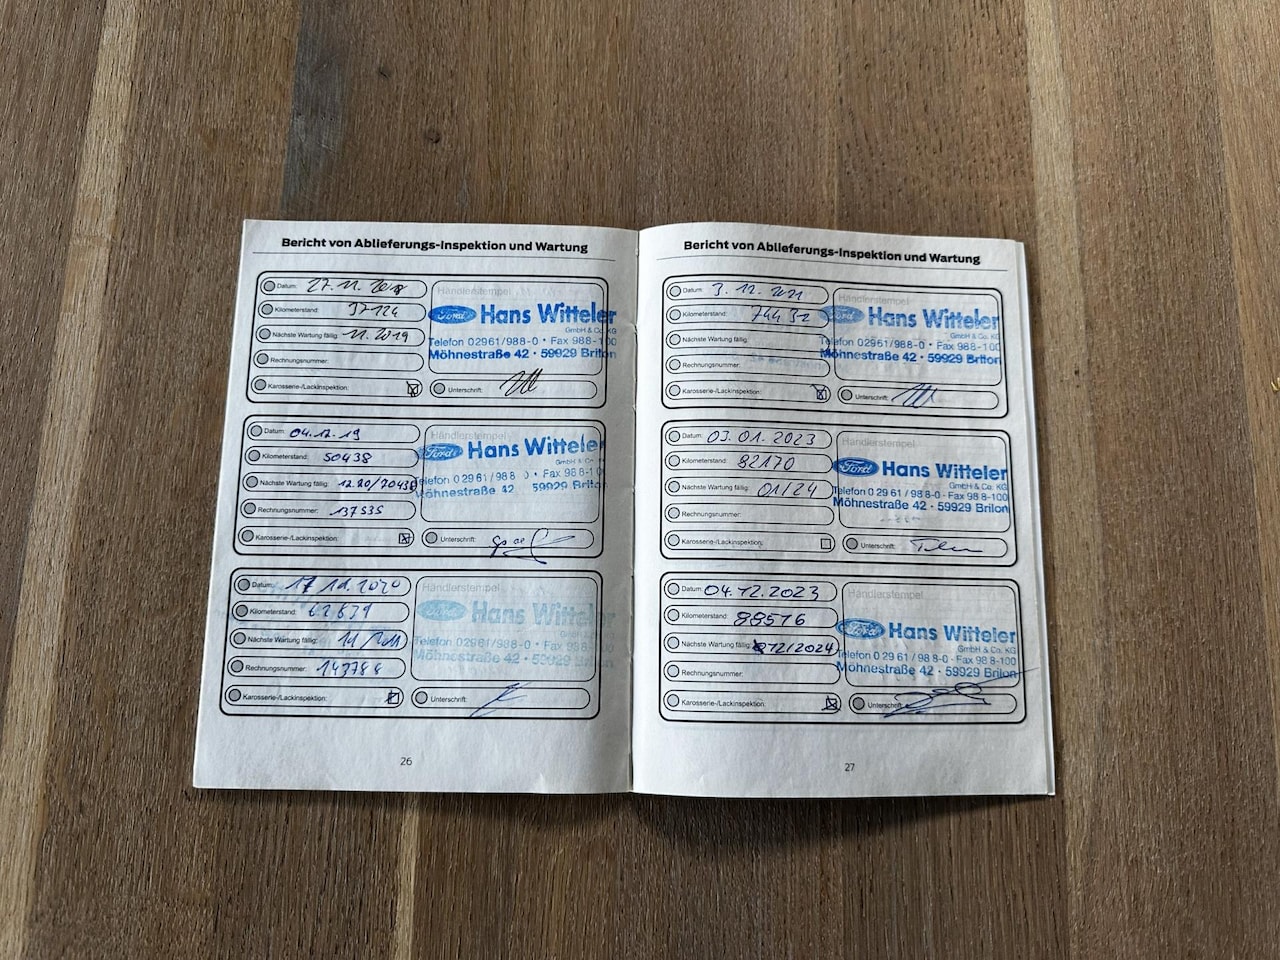 Bericht von Ablieferungs-Inspektion und Wartung
Datum: 27.11.2018
Kilometerstand: 37124
Nächste Wartung fällig: 11.2019
Rechnungsnummer:
Karosserie-/Lackinspektion:
Händlerstempel
Ford Hans Witteler
GmbH & Co. KG
Telefon 02961/988-0 • Fax 988-100
Möhnestraße 42 • 59929 Brilon
Unterschrift:
Datum: 04.12.19
Kilometerstand: 50438
Nächste Wartung fällig: 12.20/70438
Rechnungsnummer: 137535
Karosserie-/Lackinspektion:
Händlerstempel
Ford Hans Witteler
GmbH & Co.
Telefon 02961/988 • Fax 988-10
Möhnestraße 42 59929 Brilon
Unterschrift:
Datum: 17 11.2020
Kilometerstand: 62639
Nächste Wartung fällig: 11/
Rechnungsnummer:
Karosserie-/Lackinspektion:
Händlerstempel
Ford Hans Witteler
Telefon 02961/988-0 • Fax 988-1
Möhnestraße 42 • 59929 Brilon
Unterschrift:
26
Bericht von Ablieferungs-Inspektion und Wartung
Datum: 3.12.2021
Kilometerstand: 74432
Nächste Wartung fällig:
Rechnungsnummer:
Karosserie-/Lackinspektion:
Händlerstempel
Ford Hans Witteler
GmbH & Co. KG
Telefon 02961/988-0 • Fax 988-100
Möhnestraße 42 • 59929 Brilon
Unterschrift:
Datum: 03.01.2023
Kilometerstand: 82170
Nächste Wartung fällig: 01/24
Rechnungsnummer:
Karosserie-/Lackinspektion:
Händlerstempel
Ford Hans Witteler
GmbH & Co. KG
Telefon 02961/988-0 - Fax 988-100
Möhnestraße 42 • 59929 Brilon
Unterschrift:
Datum: 04.12.2023
Kilometerstand: 88576
Nächste Wartung fällig: 12/2024
Rechnungsnummer:
Karosserie-/Lackinspektion:
Händlerstempel
Ford Hans Witteler
GmbH & Co. KG
Telefon 02961/988-0 - Fax 988-100
Möhnestraße 42 • 59929 Brilon
Unterschrift:
27